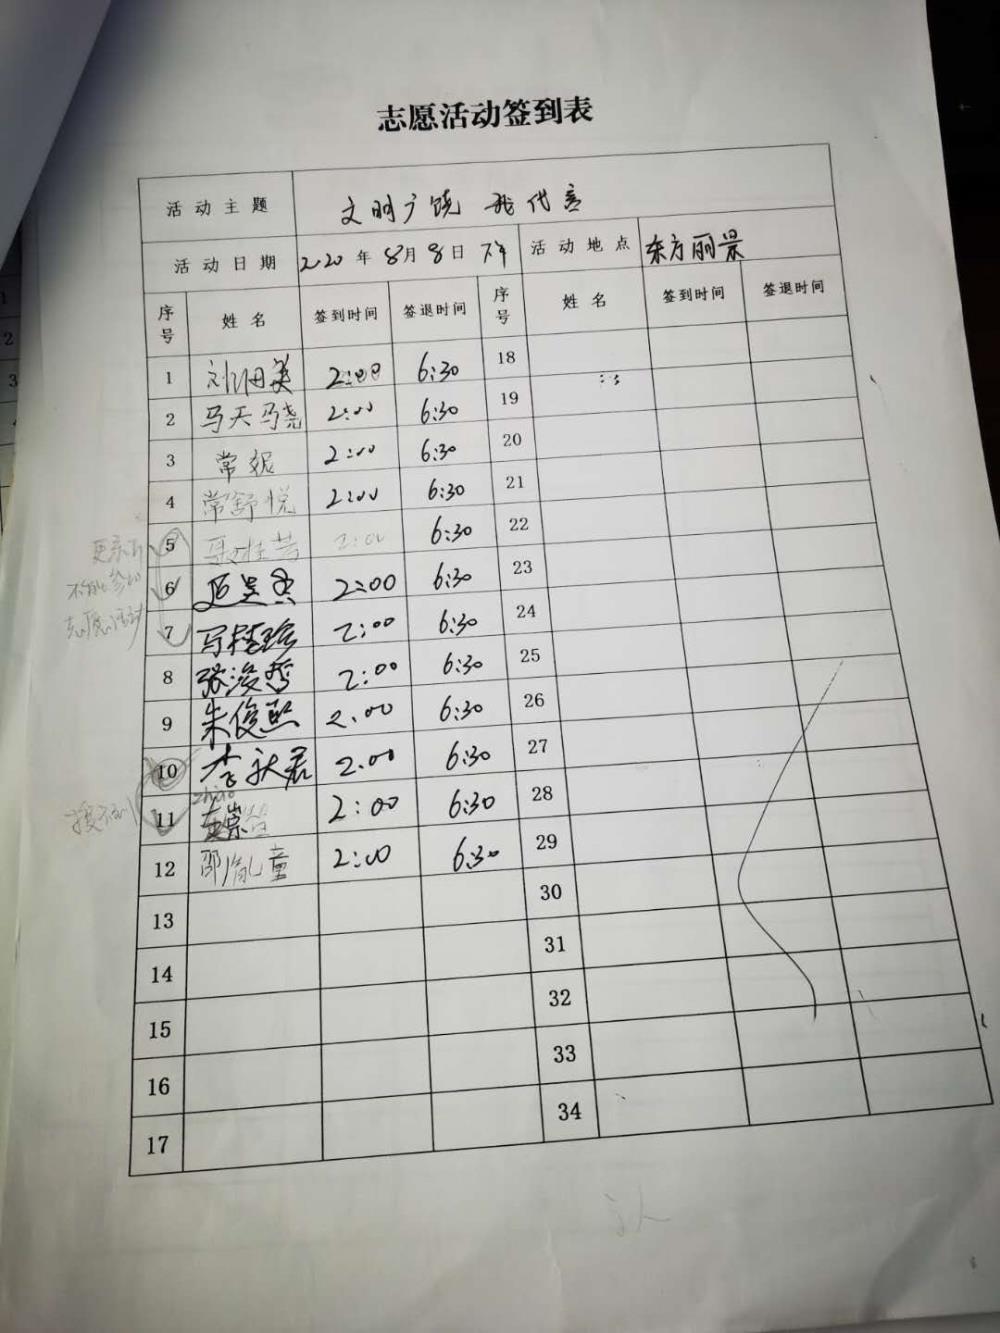 志愿活动签到表
活动主题 文明广饶 我代言
活动日期 2020年8月8日 下午 活动地点 东方丽景
序号 姓名 签到时间 签退时间 序号 姓名 签到时间 签退时间
1 刘珊美 2:00 6:30 18
2 马天骁 2:00 6:30 19
3 常妮 2:00 6:30 20
4 常舒悦 2:00 6:30 21
5 2:00 6:30 22
6 2:00 6:30 23
不能参加
志愿活动
7 马桂珍 2:00 6:30 24
8 张浚哲 2:00 6:30 25
9 朱俊熙 2:00 6:30 26
10 李秋君 2:00 6:30 27
zhao
搜不到
11 2:00 6:30 28
12 邵胤童 2:00 6:30 29
13 30
14 31
15 32
16 33
17 34